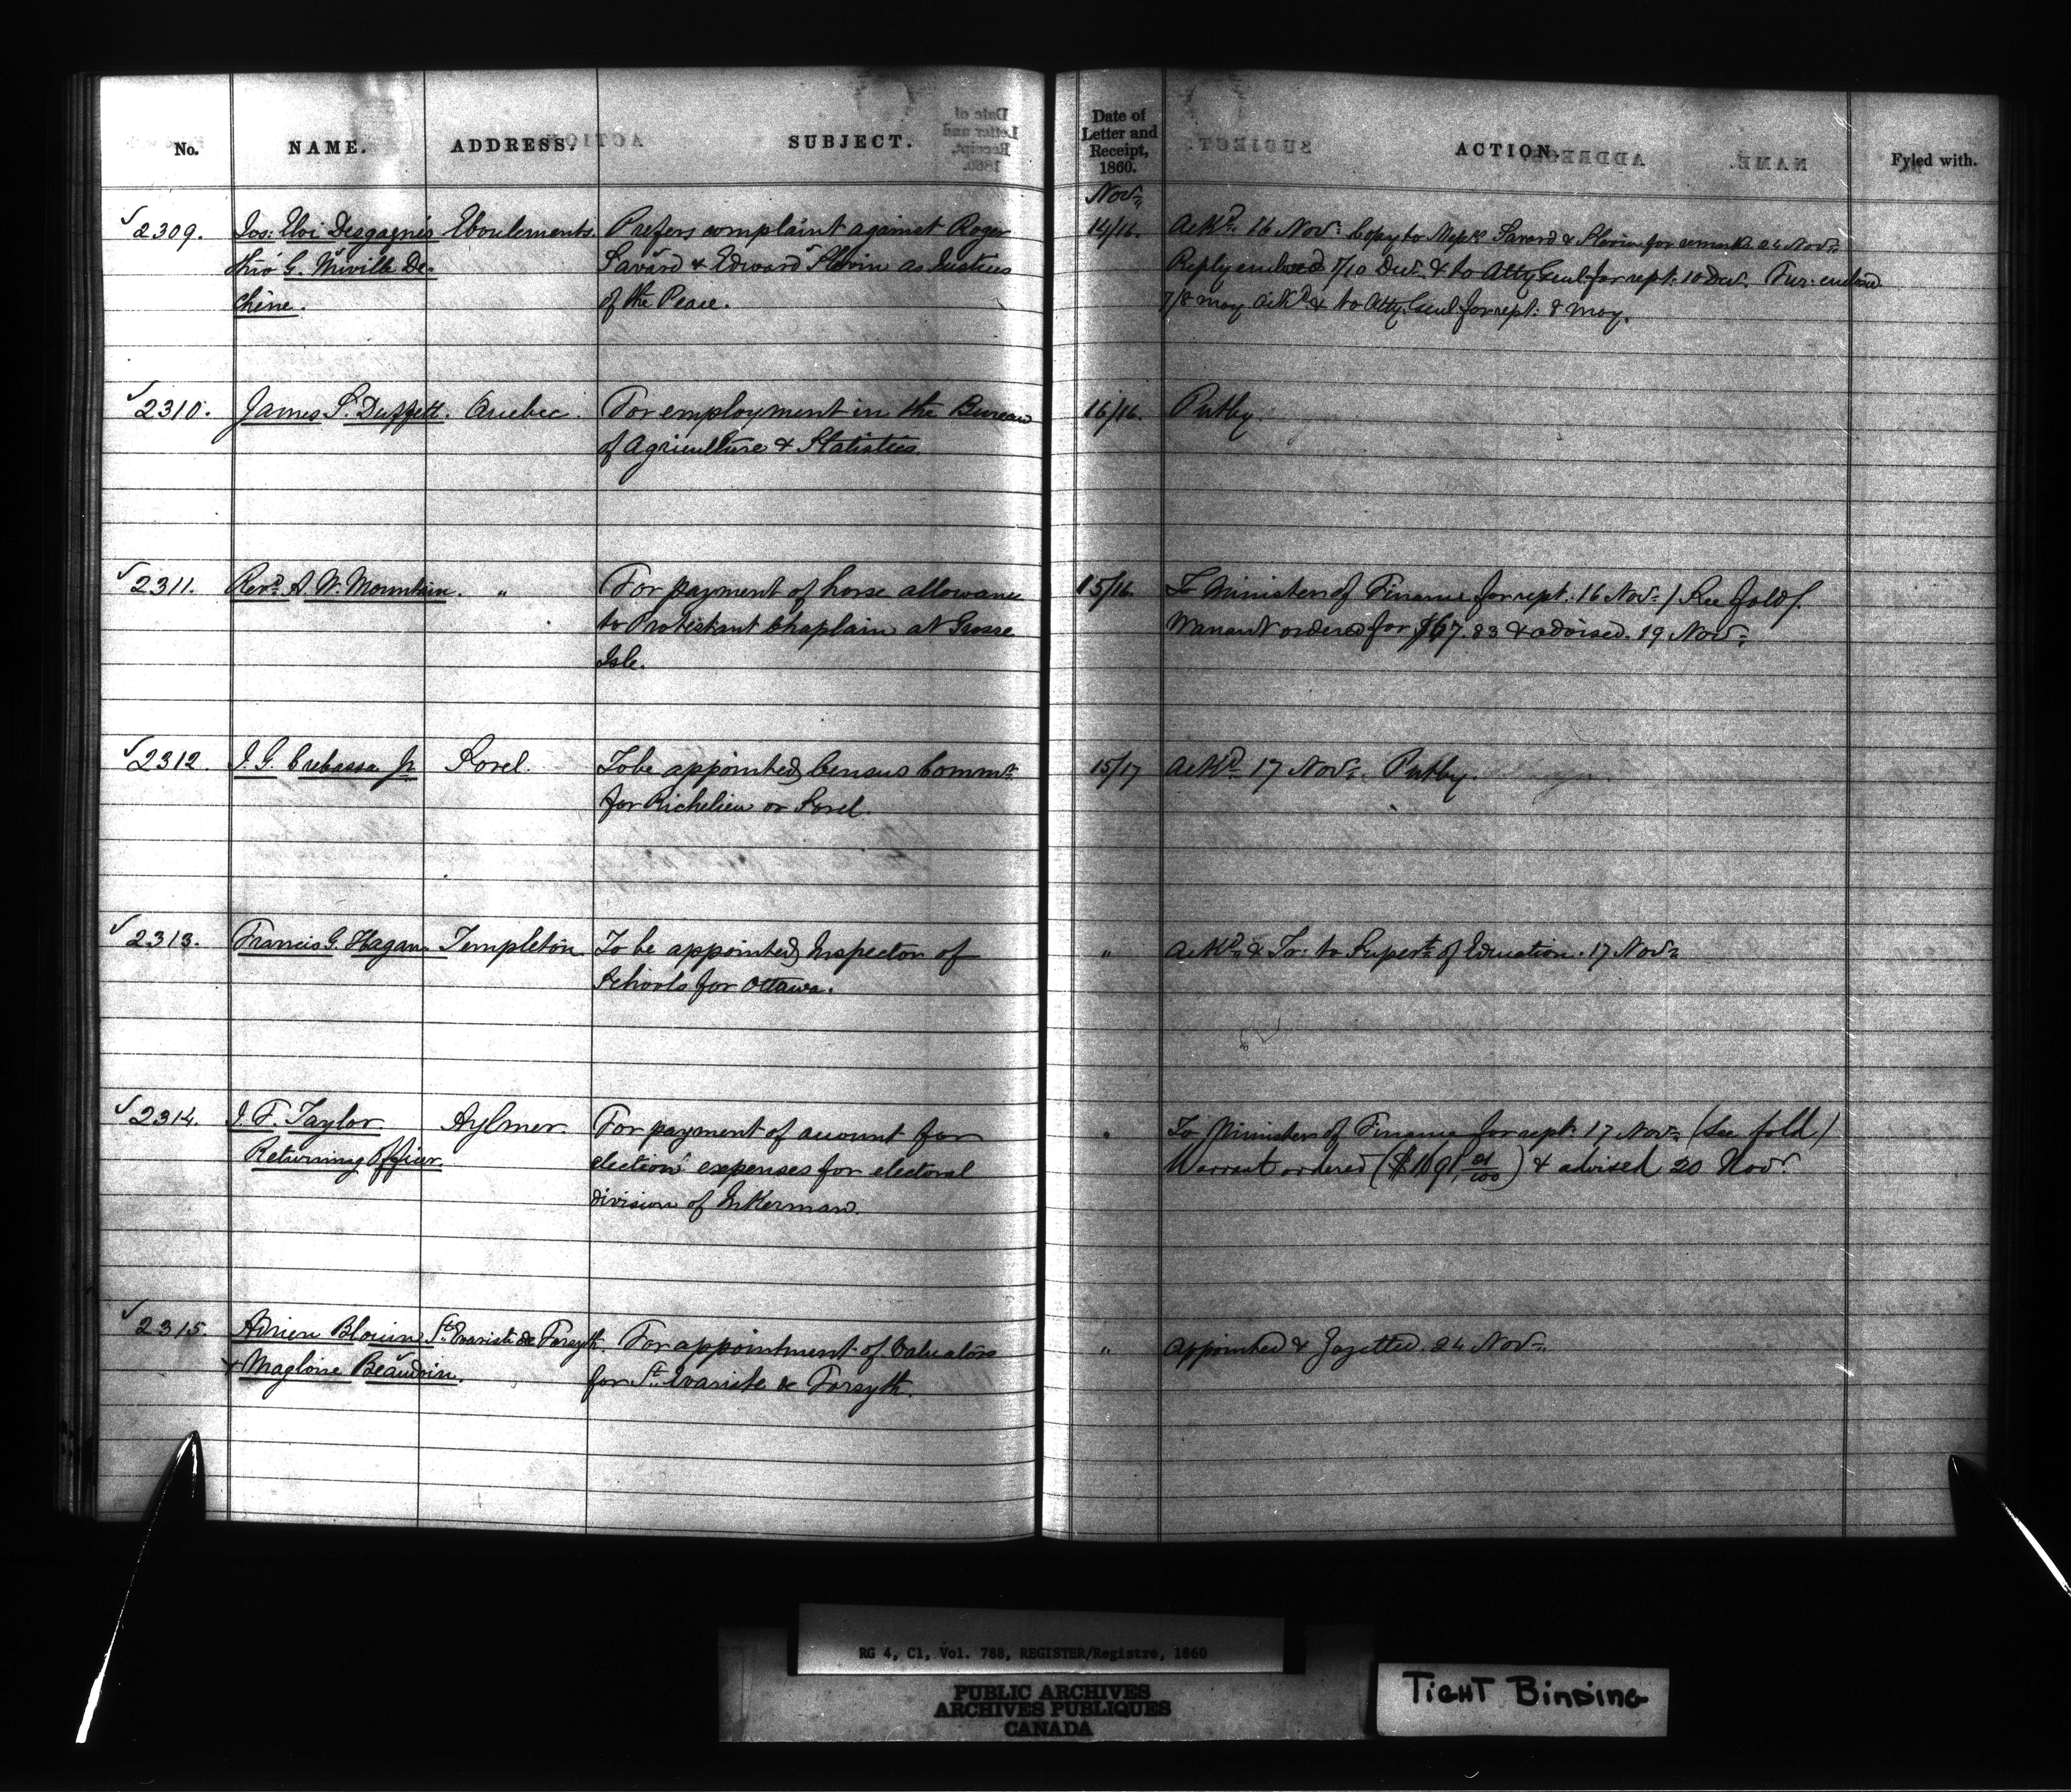 No. NAME. ADDRESS. SUBJECT. Date of Letter and Receipt, 1860. ACTION. Fyled with.
Novr.
2309. Jos: Eloi Desgagnés Eboulements. Prefers complaint against Roger 14/16. Ackd. 16 Novr. Copy to Messrs Savard & Slevin for remarks 24 Novr.
Théo G. Miville De- Savard & Edward Slevin as Justices Reply enclosed 7/10 Decr. & to Atty Genl for rept. 10 Decr. Fur:
chène. of the Peace. 7/8 May Ackd & to Atty. Genl for rept: 8 May.
2310. James S. Duffett. Quebec. For employment in the Bureau 16/16. Putby.
of Agriculture & Statistics
2311. Revd. A. W. Mountain. " For payment of horse allowance 15/16. To Minister of Finance for rept. 16 Novr. / See fold /.
to Protestant Chaplain at Grosse Warrant ordered for $67.83 & advised. 19 Novr.
Isle.
2312. J. G. Crebassa Jr Sorel. To be appointed Census Commr. 15/17 Ackd. 17 Novr. Putby.
for Richelieu or Sorel.
2313. Francis G. Hagan. Templeton. To be appointed Inspector of " Ackd. & Tr: to Supert. of Education. 17 Novr.
Schools for Ottawa.
2314. J. F. Taylor Aylmer. For payment of account for " To Minister of Finance for rept. 17 Novr. (See fold)
Returning Officer. election expenses for electoral Warrant ordered & advised 20 Novr.
division of Inkerman.
2315. Adrien Blouin St. Evariste de Forsyth. For appointment of Valuators " Appointed & Gazetted. 24 Novr.
& Magloire Beaudoin. for St. Evariste de Forsyth.
RG 4, C1, Vol. 788, REGISTER/Registre, 1860
PUBLIC ARCHIVES
ARCHIVES PUBLIQUES
CANADA
TIGHT BINDING